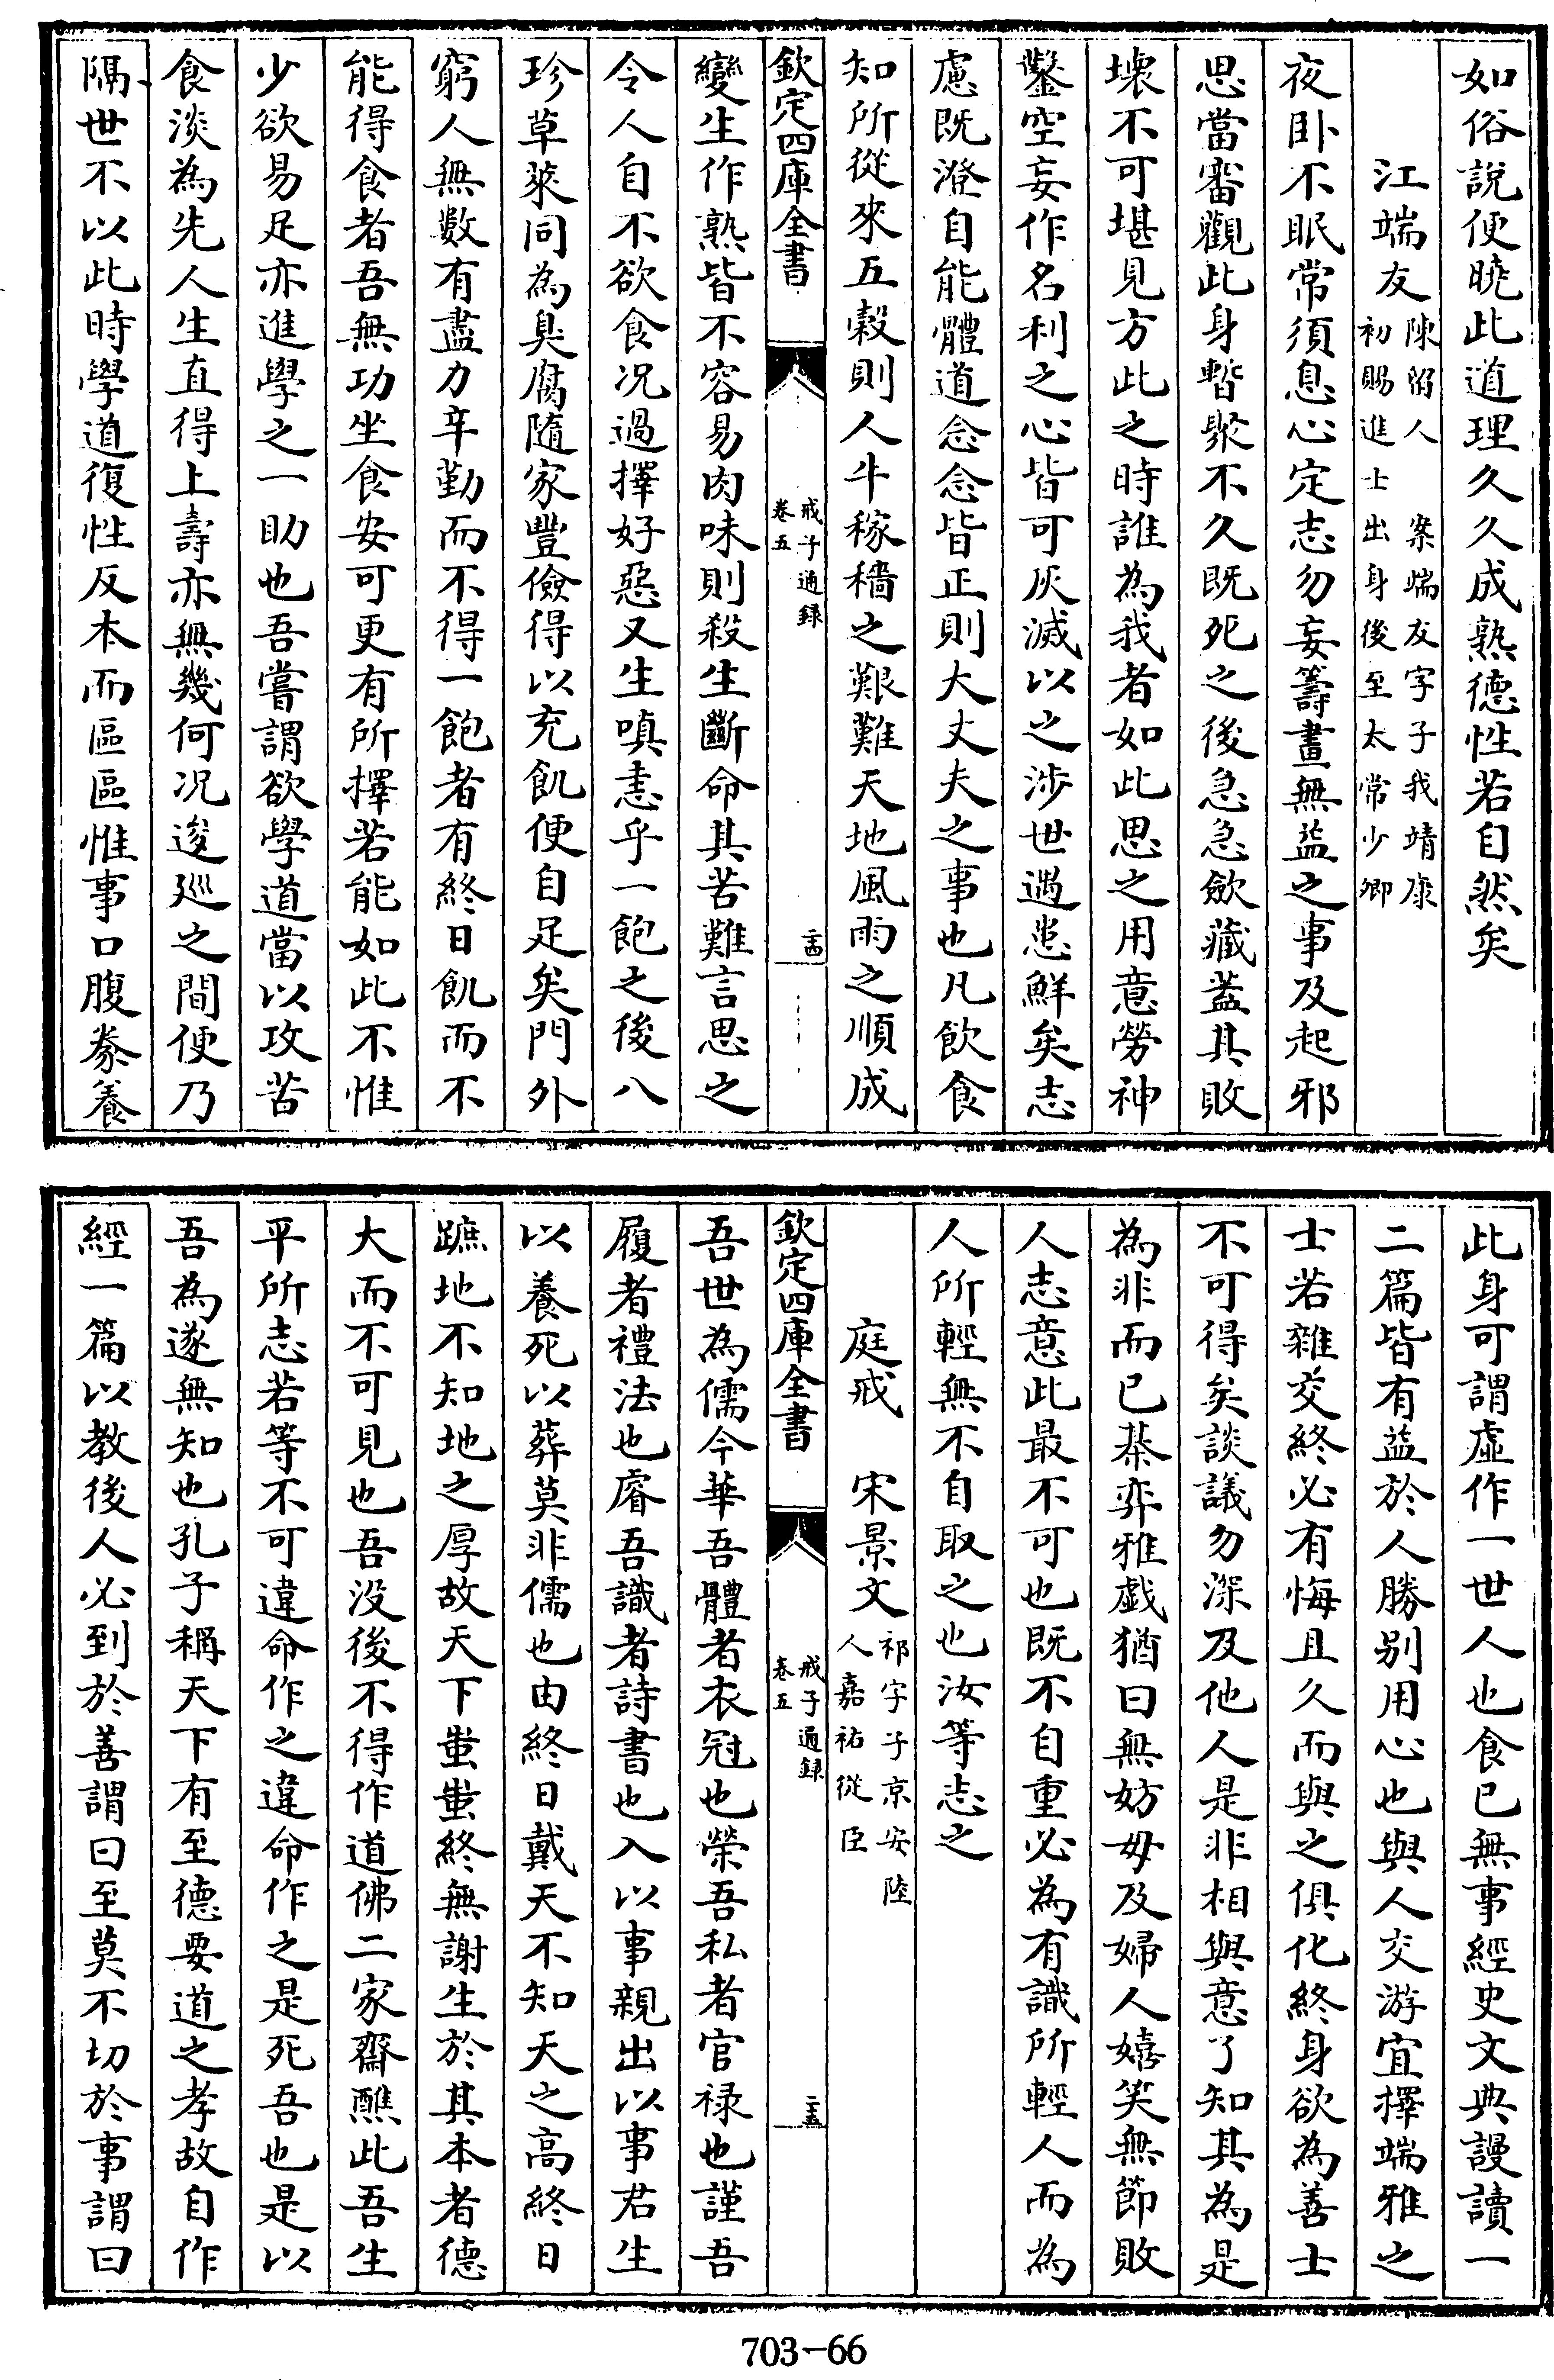 如俗說便曉此道理久久成熟德性若自然矣
江端友陳留人 案端友字子我靖康
初賜進士出身後至太常少卿
夜卧不眠常須息心定志勿妄籌畫無益之事及起邪
思當審觀此身暫聚不久既死之後急急歛藏蓋其敗
壊不可堪見方此之時誰為我者如此思之用意勞神
鑿空妄作名利之心皆可灰滅以之涉世過患鮮矣志
慮既澄自能體道念念皆正則大丈夫之事也凡飲食
知所從來五穀則人牛稼穡之艱難天地風雨之順成
欽定四庫全書
戒子通録
卷五
二十四
變生作熟皆不容易肉味則殺生斷命其苦難言思之
令人自不欲食况過擇好惡又生嗔恚乎一飽之後八
珍草萊同為臭腐隨家豐儉得以充飢便自足矣門外
窮人無數有盡力辛勤而不得一飽者有終日飢而不
能得食者吾無功坐食安可更有所擇若能如此不惟
少欲易足亦進學之一助也吾嘗謂欲學道當以攻苦
食淡為先人生直得上壽亦無幾何况逡廵之間便乃
隔世不以此時學道復性反本而區區惟事口腹豢養
此身可謂虛作一世人也食已無事經史文典謾讀一
二篇皆有益於人勝别用心也與人交游宜擇端雅之
士若雜交終必有悔且久而與之俱化終身欲為善士
不可得矣談議勿深及他人是非相與意了知其為是
為非而已棊弈雅戯猶曰無妨毋及婦人嬉笑無節敗
人志意此最不可也既不自重必為有識所輕人而為
人所輕無不自取之也汝等志之
庭戒 宋景文祁字子京安陸
人嘉祐從臣
欽定四庫全書
戒子通録
卷五
二十五
吾世為儒今華吾體者衣冠也榮吾私者官禄也謹吾
履者禮法也睿吾識者詩書也入以事親出以事君生
以養死以葬莫非儒也由終日戴天不知天之高終日
蹠地不知地之厚故天下蚩蚩終無謝生於其本者德
大而不可見也吾没後不得作道佛二家齋醮此吾生
平所志若等不可違命作之違命作之是死吾也是以
吾為遂無知也孔子稱天下有至德要道之孝故自作
經一篇以教後人必到於善謂曰至莫不切於事謂曰
703-66